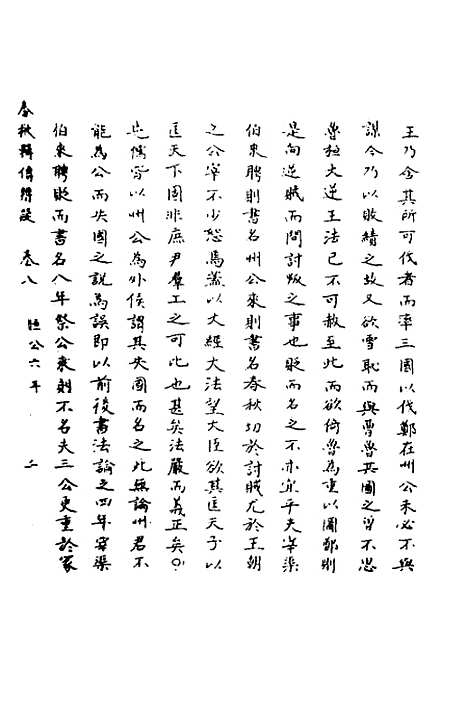 王乃舍其所可伐者而率三國以伐鄭在州公未必不與
謀今乃以敗績之故又欲雪恥而與曹魯共圖之曾不思
魯桓大逆王法已不可赦至此而欲倚魯為重以圖鄭則
是向逆賊而問討叛之事也貶而名之不亦宜乎夫宰渠
伯來聘則書名州公來則書名春秋切於討賊尤於王朝
之公宰不少恕焉蓋以大經大法望大臣欲其匡天子以
匡天下固非庶尹羣工之可比也甚矣法嚴而義正矣
先儒皆以州公為外侯謂其失國而名之此無論州君不
能為公而失國之說為誤即以前後書法論之四年宰渠
伯來聘貶而書名八年祭公來則不名夫三公更重於冢
春秋輯傳辨疑 卷八 桓公六年 二